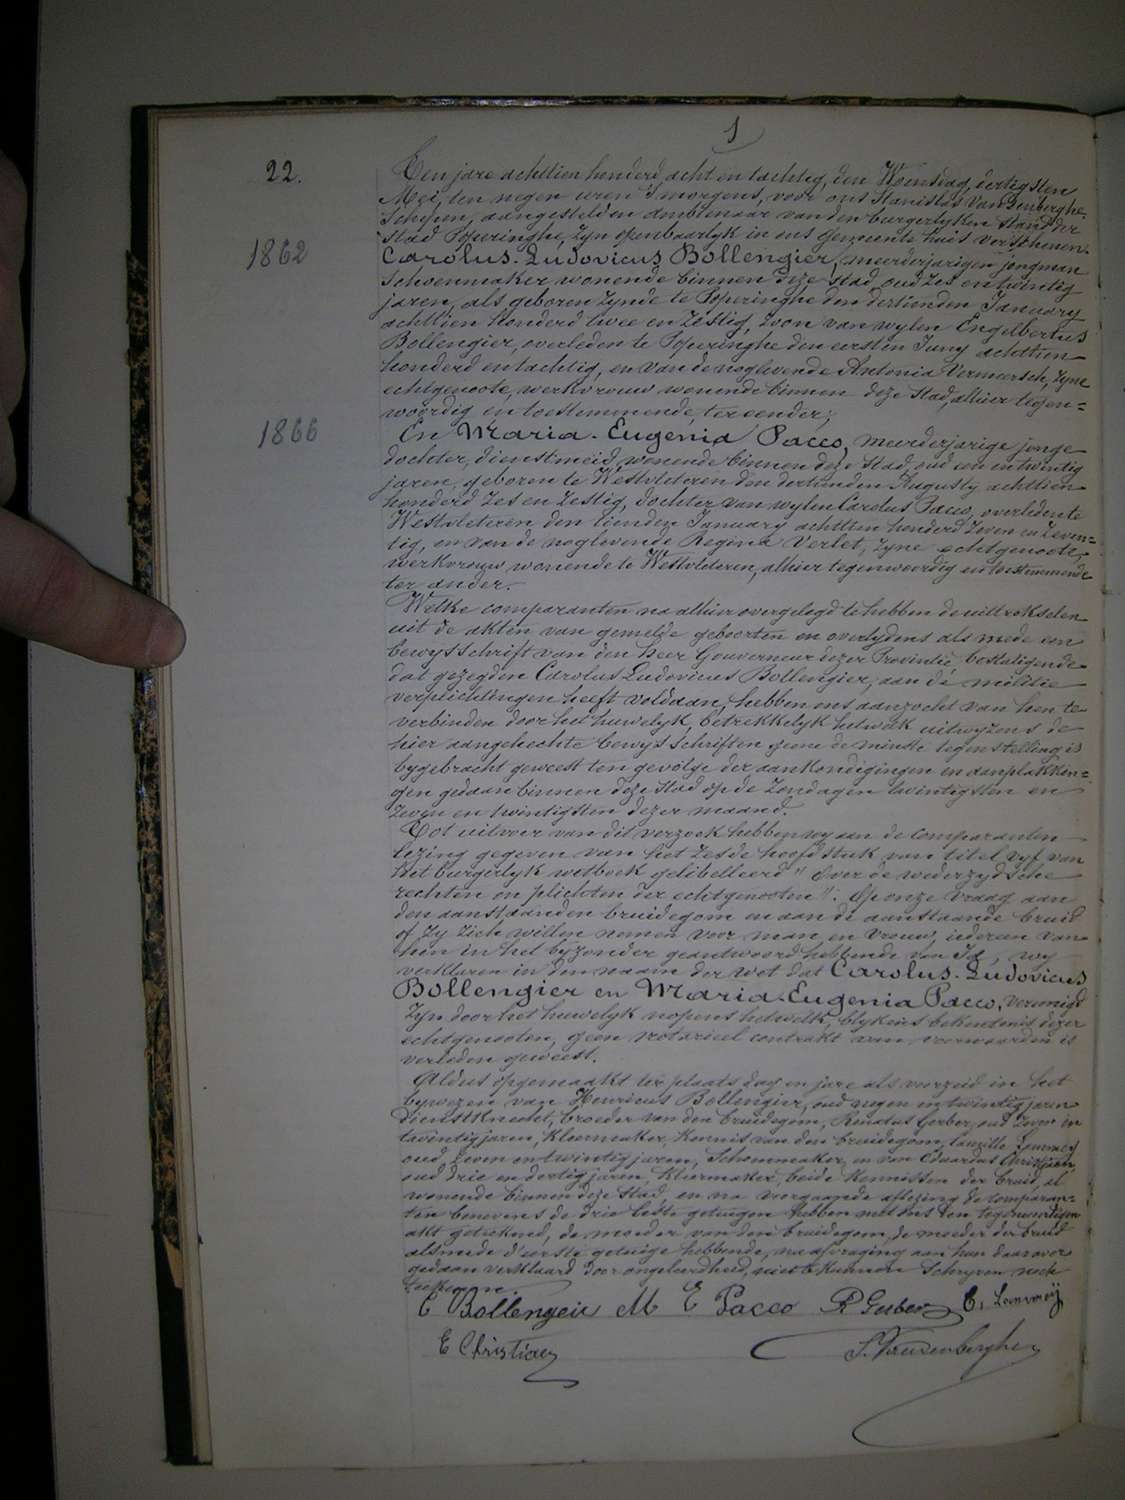 1
22.
Een jare achttien honderd acht en tachtig, den Woensdag, dertigsten
Mei, ten negen uren 's morgens, voor ons Stanislas Vandenberghe,
Schepen, aangestelden ambtenaar van den burgerlyken stand der
stad Poperinghe, zyn openbaarlyk in ons gemeente huis verschenen
1862
Carolus-Ludovicus Bollengier, meerderjarigen jongman
schoenmaker wonende binnen deze stad, oud zes en twintig
jaren, als geboren zynde te Poperinghe den dertienden January
achttien honderd twee en zestig, zoon van wylen Engelbertus
Bollengier, overleden te Poperinghe den eersten Juny achttien
honderd en tachtig, en van de noglevende Antonia Vermeersch, zyne
echtgenoote, werkvrouw wonende binnen deze stad, alhier tegen=
woordig en toestemmende, ter eender;
1866
En Maria-Eugenia Pacco, meerderjarige jonge
dochter, dienstmeid, wonende binnen deze stad, oud een en twintig
jaren, geboren te Westvleteren den dertienden Augusty achttien
honderd zes en zestig, dochter van wylen Carolus Pacco, overleden te
Westvleteren den tienden January achttien honderd zeven en zeven=
tig, en van de noglevende Regina Verlet, zyne echtgenoote,
werkvrouw wonende te Westvleteren, alhier tegenwoordig en toestemmende
ter ander.
Welke comparanten na alhier overgelegd te hebben de uittrekselen
uit de akten van gemelde geboorten en overlydens als mede een
bewysschrift van den heer Gouverneur dezer Provintie bestatigende
dat gezegden Carolus Ludovicus Bollengier, aan de militie
verplichtingen heeft voldaan, hebben ons aanzocht van hen te
verbinden door het huwelyk, betrekkelyk hetwelk uitwyzens de
hier aangehechte bewysschriften geene de minste tegenstelling is
bygebracht geweest ten gevolge der aankondigingen en aanplakkin=
gen gedaan binnen deze stad op de Zondagen twintigsten en
zeven en twintigsten dezer maand.
Tot uitvoer van dit verzoek hebben wy aan de comparanten
lezing gegeven van het zesde hoofdstuk van titel vyf van
het burgerlyk wetboek gelibelleerd "Over de wederzydsche
rechten en plichten der echtgenooten". Op onze vraag aan
den aanstaanden bruidegom en aan de aanstaande bruid
of zy zich willen nemen voor man en vrouw, iedereen van
hen in het byzonder geantwoord hebbende van Ja, wy
verklaren in den naam der wet dat Carolus-Ludovicus
Bollengier en Maria-Eugenia Pacco, vereenigd
zyn door het huwelyk nopens hetwelk, blykens bekentenis dezer
echtgenooten, geen notarieel contrakt van voorwaarden is
verleden geweest.
Aldus opgemaakt ter plaats dag en jare als voorzeid in het
bywezen van Henricus Bollengier, oud negen en twintig jaren
dienstknecht, broeder van den bruidegom, Renatus Gerber, oud zeven en
twintig jaren, kleermaker, kennis van den bruidegom,
oud zeven en twintig jaren, Schoenmaker, en van Eduardus Christiaen,
oud drie en dertig jaren, kleermaker, beide kennissen der bruid, al
wonende binnen deze stad, en na voorgaande aflezing de comparan=
ten benevens de drie leste getuigen hebben met ons den tegenwoordigen
akt geteekend, de moeder van den bruidegom, de moeder der bruid
alsmede d'eerste getuige hebbende, na afvraging aan hun daarover
gedaan verklaard door ongeleerdheid, niet te kunnen schryven noch
teekenen.
C Bollengeir M E Pacco R Gerber
E Christiaen S. Vandenberghe